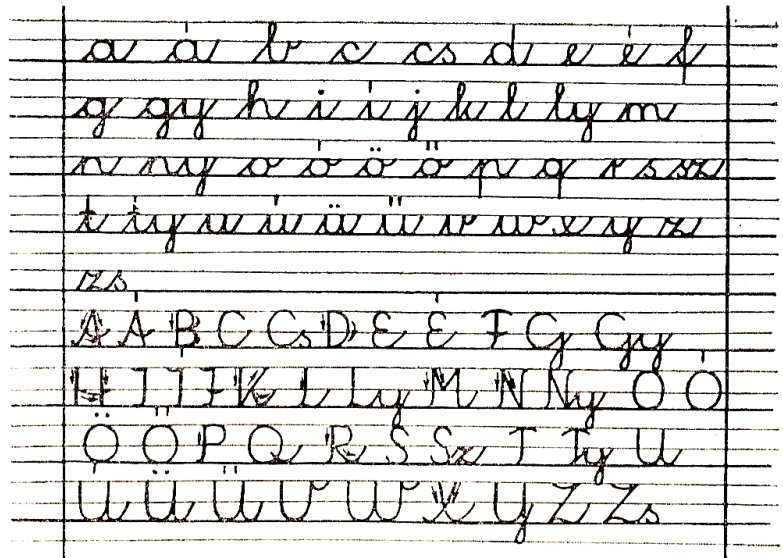 a á b c cs d e é f
g gy h i í j k l ly m
n ny o ó ö ő p q r s sz
t ty u ú ü ű v w x y z
zs
A Á B C Cs D E É F G Gy
H I Í J K L Ly M N Ny O Ó
Ö Ő P Q R S Sz T Ty U
Ú Ü Ű V W X Y Z Zs